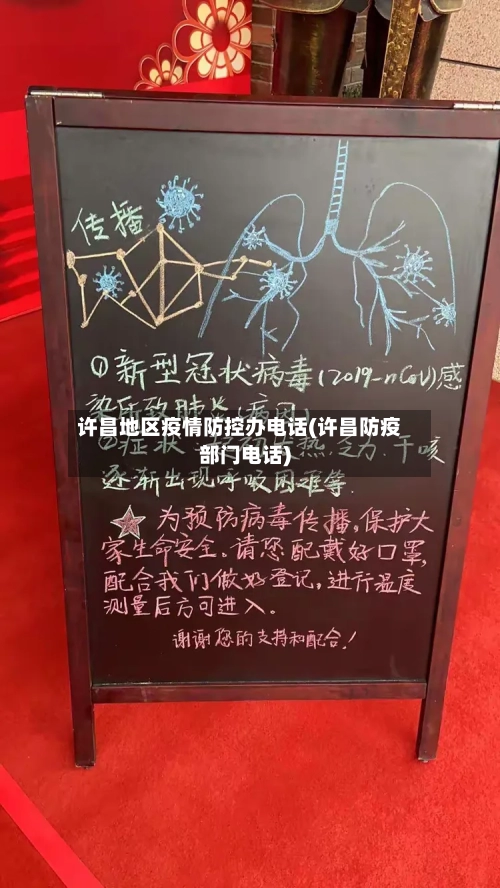 传播
①新型冠状病毒(2019-nCoV)感
染所致肺炎(病因)
许昌地区疫情防控办电话(许昌防疫
部门电话)
②症状 热.乏力.干咳
逐渐出现呼吸困难等.
为预防病毒传播,保护大
家生命安全.请您配戴好口罩,
配合我们做好登记,进行温度
测量后方可进入。
谢谢您的支持和配合!